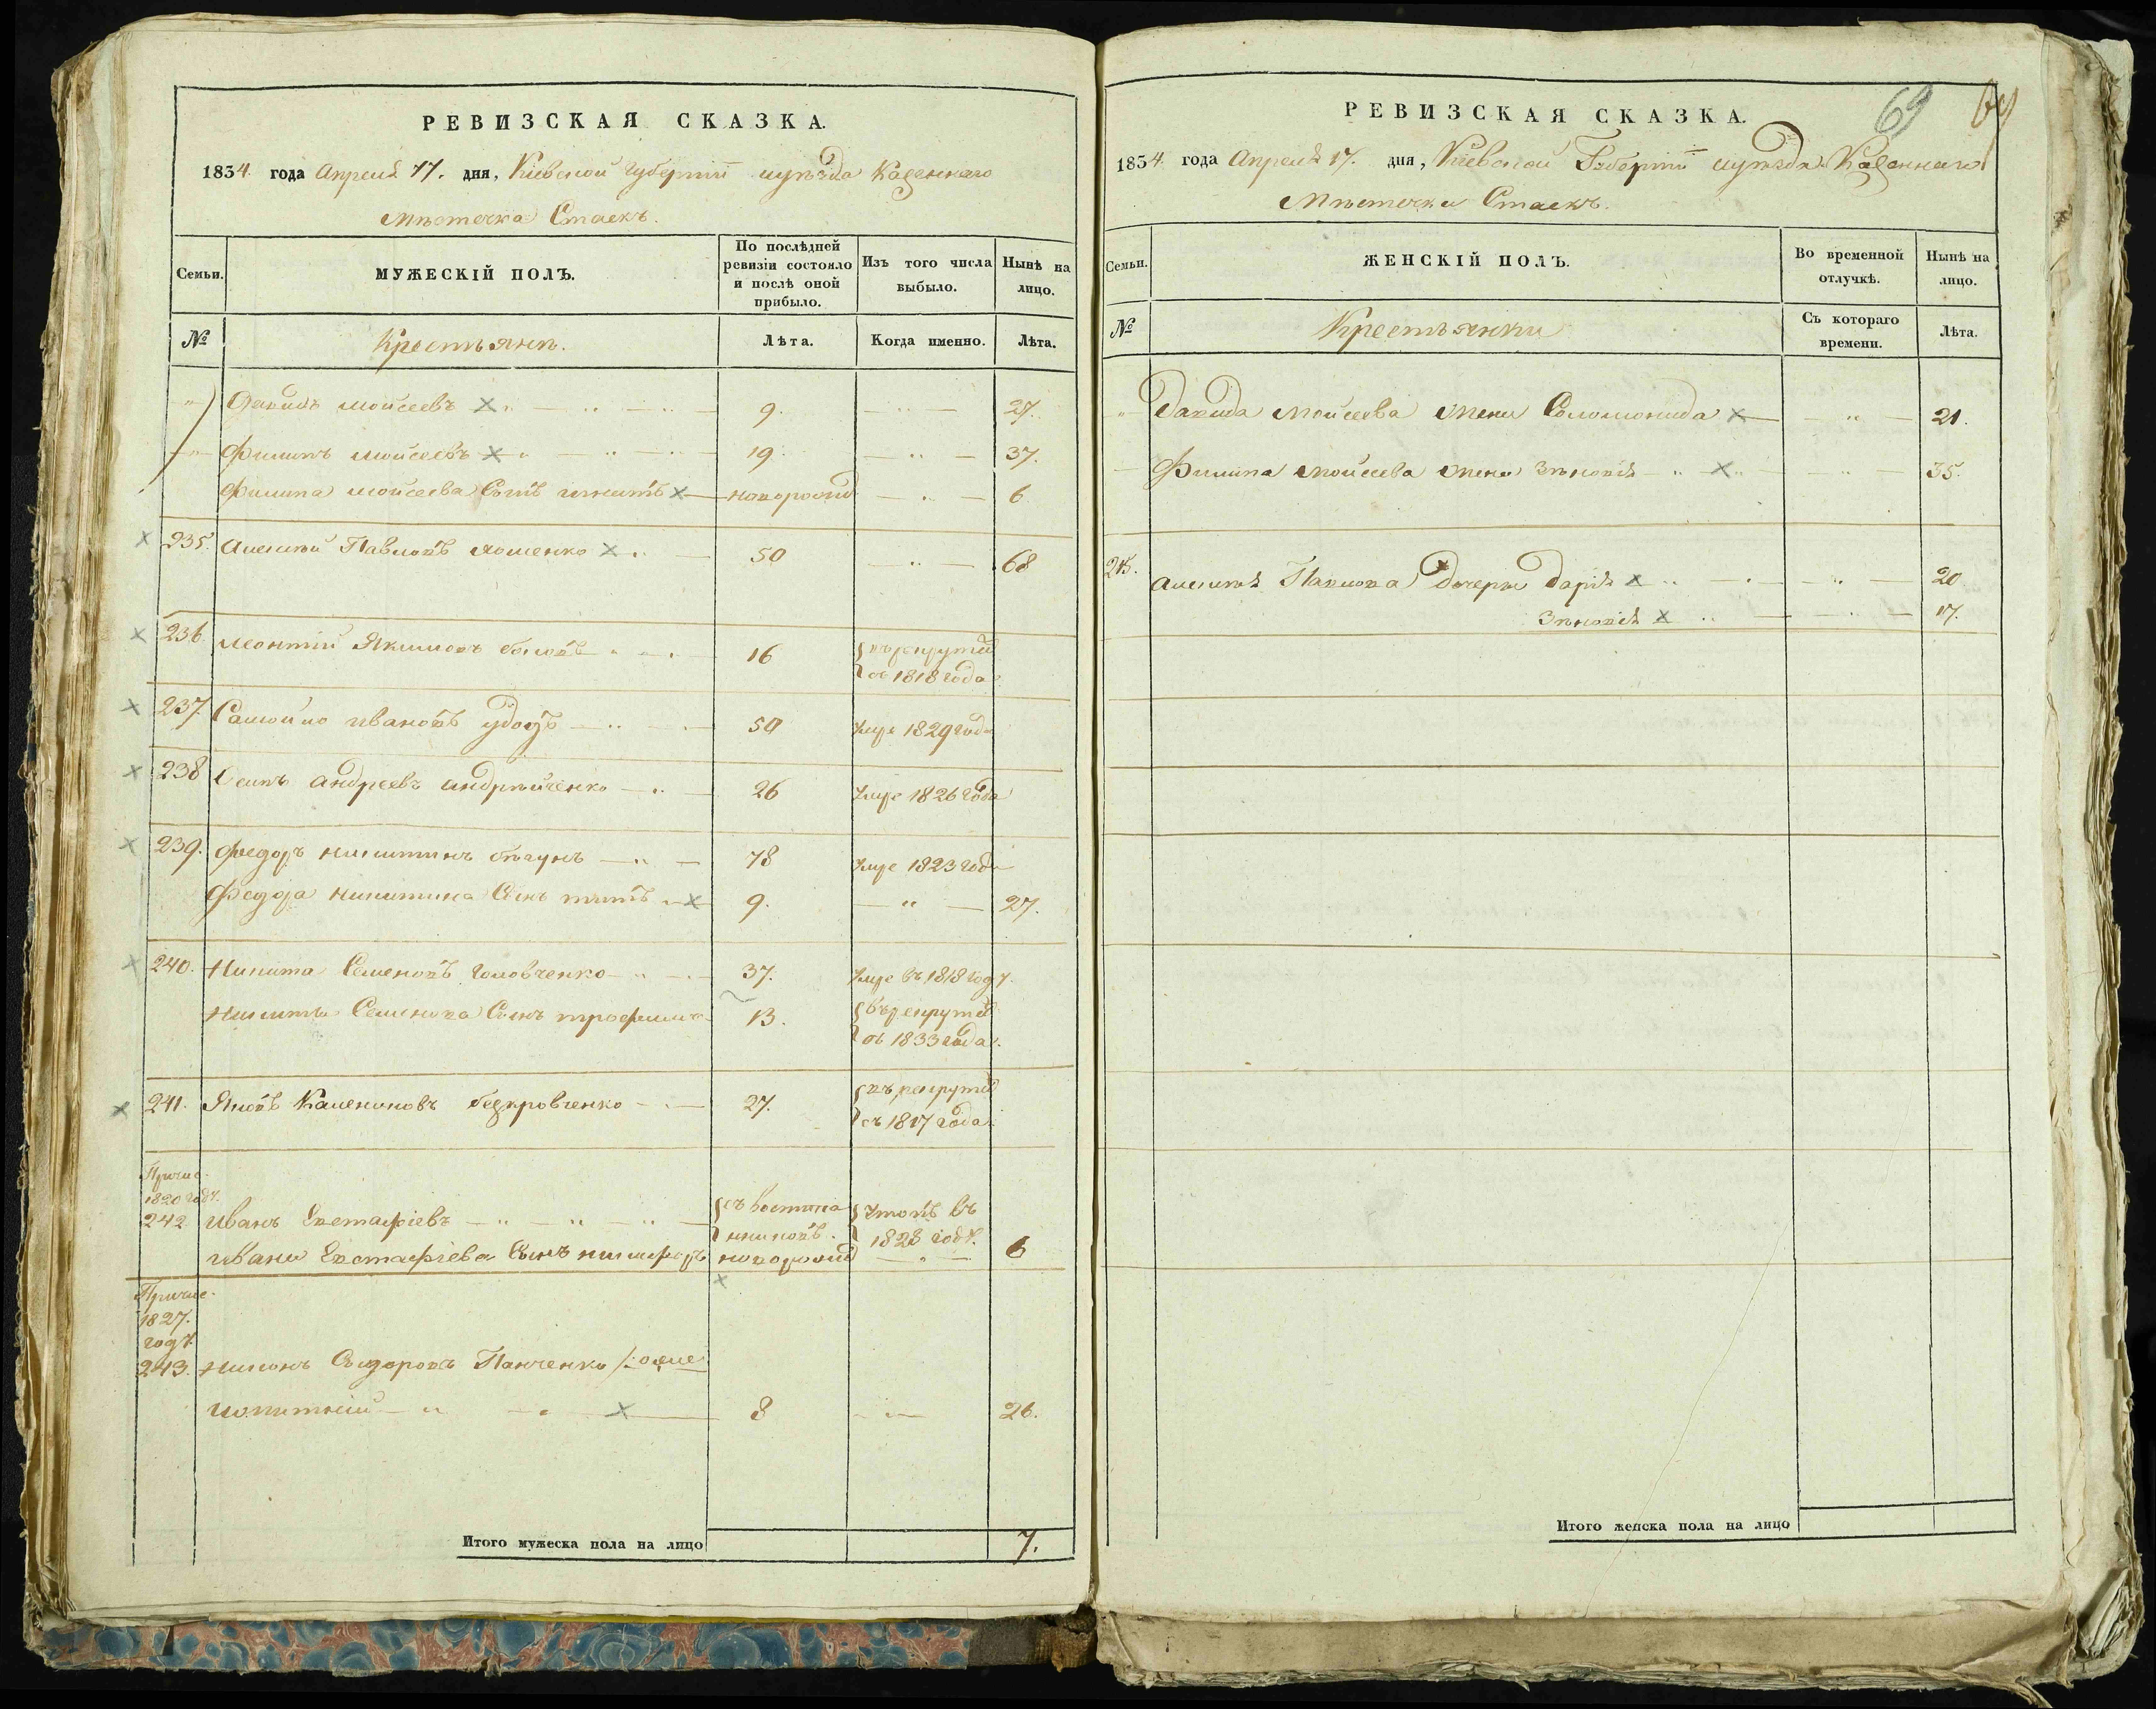 РЕВИЗСКАЯ СКАЗКА.
1834. года Апреля 17. дня, Кіевской губерніи и уѣзда Казеннаго
Мѣстечка Стаекъ.
Семьи.
МУЖЕСКІЙ ПОЛЪ.
По послѣдней ревизіи состояло и послѣ оной прибыло.
Изъ того числа выбыло.
Нынѣ на лицо.
№
Крестьянъ.
Лѣта.
Когда именно.
Лѣта.
" Давидъ Моисеевъ 9. 27.
" Филипъ Моисеевъ 19. 37.
Филипа Моисеева Сынъ Игнатъ новорожд 6
235. Алексѣй Павловъ 50 68
236 Леонтій Якимовъ 16 въ рекруты съ 1818 года
237 Самойло Ивановъ Удодъ 50 Умре 1829 года
238 Осипъ Андреевъ Андрѣйченко 26 Умре 1826 года
239. Федоръ Никитинъ Бѣгунъ 78 Умре 1823 года
Федора Никитина Сынъ Титъ 9. 27.
240. Никита Семеновъ Головченко 37. Умре въ 1818 году.
Никиты Семенова Сынъ Трофимъ 13. въ рекруты съ 1833 года.
241. Яковъ Бедкровченко 27. въ рекруты съ 1817 года.
Причис.
1820 году.
242 Иванъ Евстафіевъ съ воспитанниковъ. Утопъ въ 1828 году.
Ивана Евстафіева Сынъ Никифоръ новорожд 6
Причис.
1827.
году.
243. Никонъ Сидоровъ Панченко
8 26.
Итого мужеска пола на лицо 7.
69
69
РЕВИЗСКАЯ СКАЗКА.
1834. года Апреля 17. дня, Кіевской Губерніи и уѣзда Казеннаго
Мѣстечка Стаекъ.
Семьи.
ЖЕНСКІЙ ПОЛЪ.
Во временной отлучкѣ.
Нынѣ на лицо.
№
Крестьянки
Съ котораго времени.
Лѣта.
" Давида Моисеева жена Соломонида " 21.
Филипа Моисеева жена Зѣновія " 35.
235. Алексѣя Павлова Дочери Дарія " 20
Зѣновія " 17.
Итого женска пола на лицо